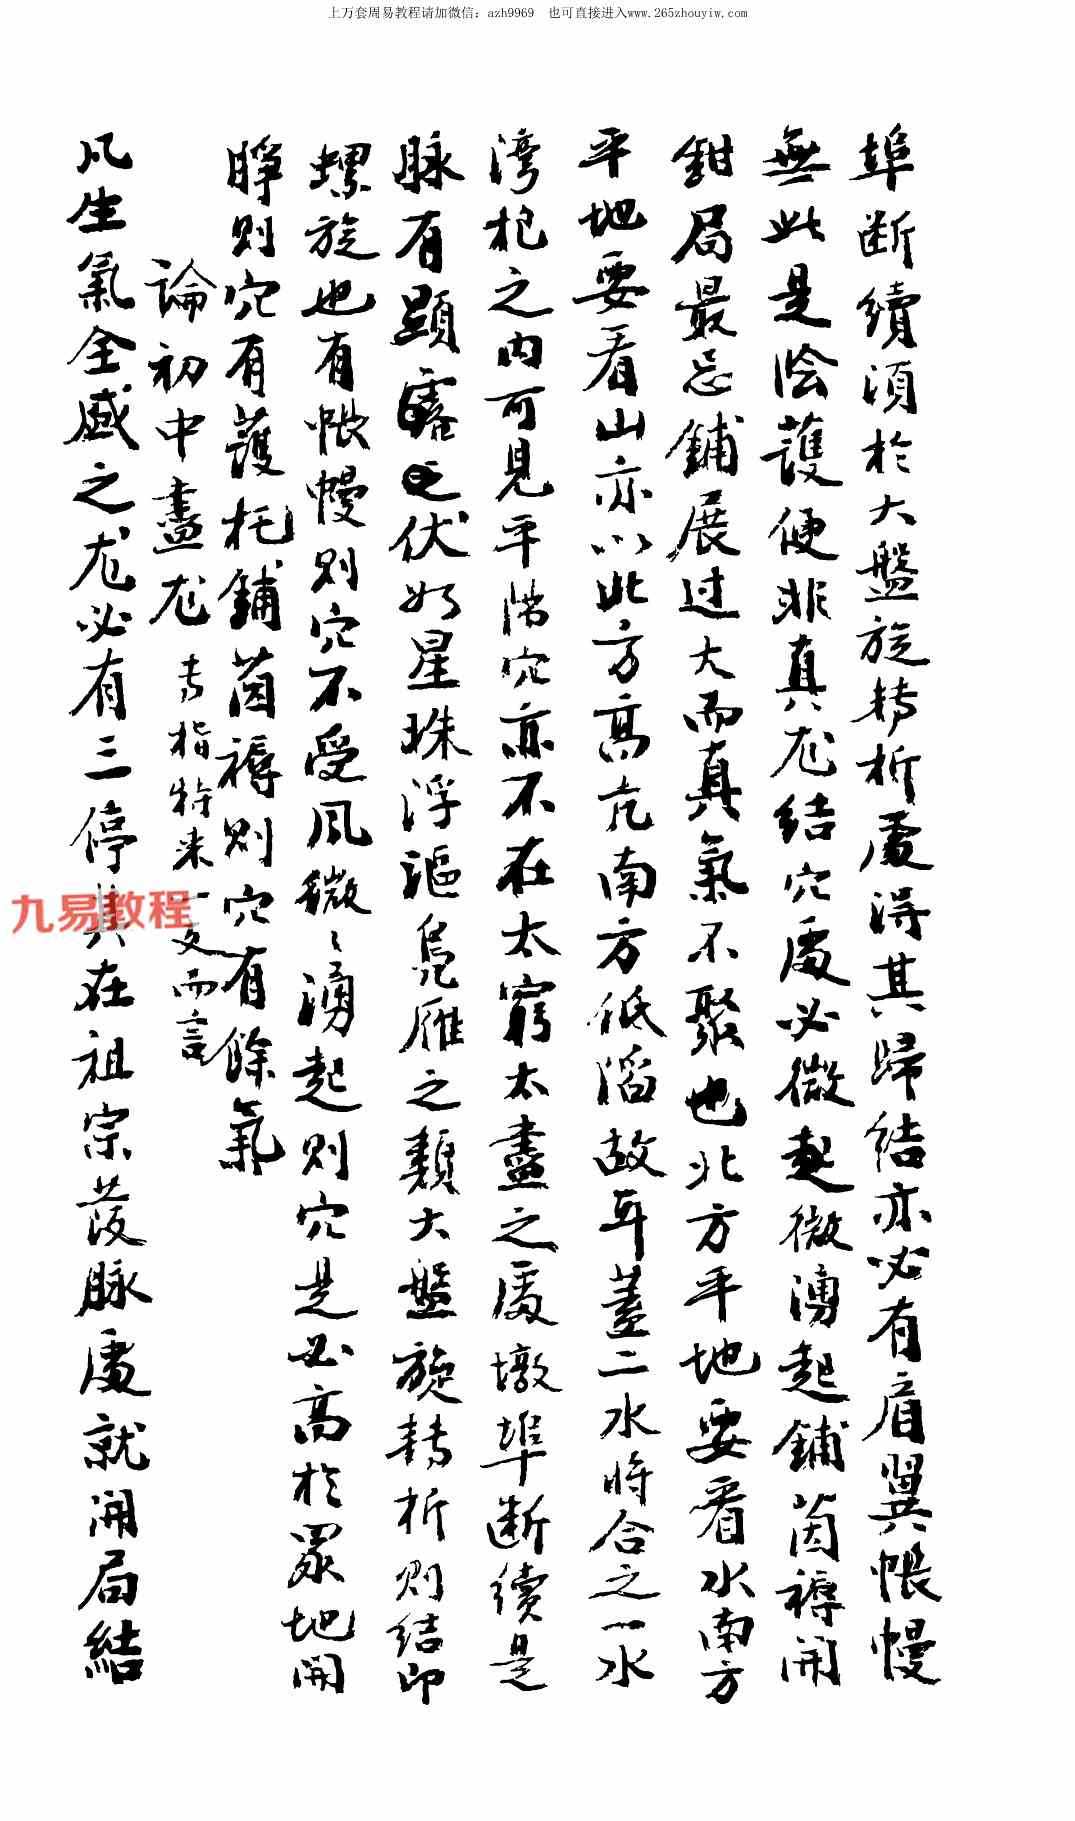 上万套周易教程请加微信：azh9969　也可直接进入www.265zhouyiw.com
埠断續須於大盤旋轉折處得其歸結亦必有肩翼帳幔
無此是陰護便非真尨結穴處必微起微湧起鋪茵褥開
鉗局最忌鋪展过大而真氣不聚也北方平地要看水南方
平地要看山亦以北方高亢南方低滔故耳蓋二水將合之一水
湾杷之内可見平陽穴亦不在太窮太盡之處墩埠断續是
脉有顯露之伏如星珠浮漚鳧雁之類大盤旋轉折則結印
螺旋也有帳幔則穴不受風微〻湧起則穴是必高於眾地開
睜則穴有護托鋪茵褥則穴有餘氣
論初中盡尨 专指特来一支而言
凡生氣全盛之尨必有三停其在祖宗落脉處就開局結
九易教程